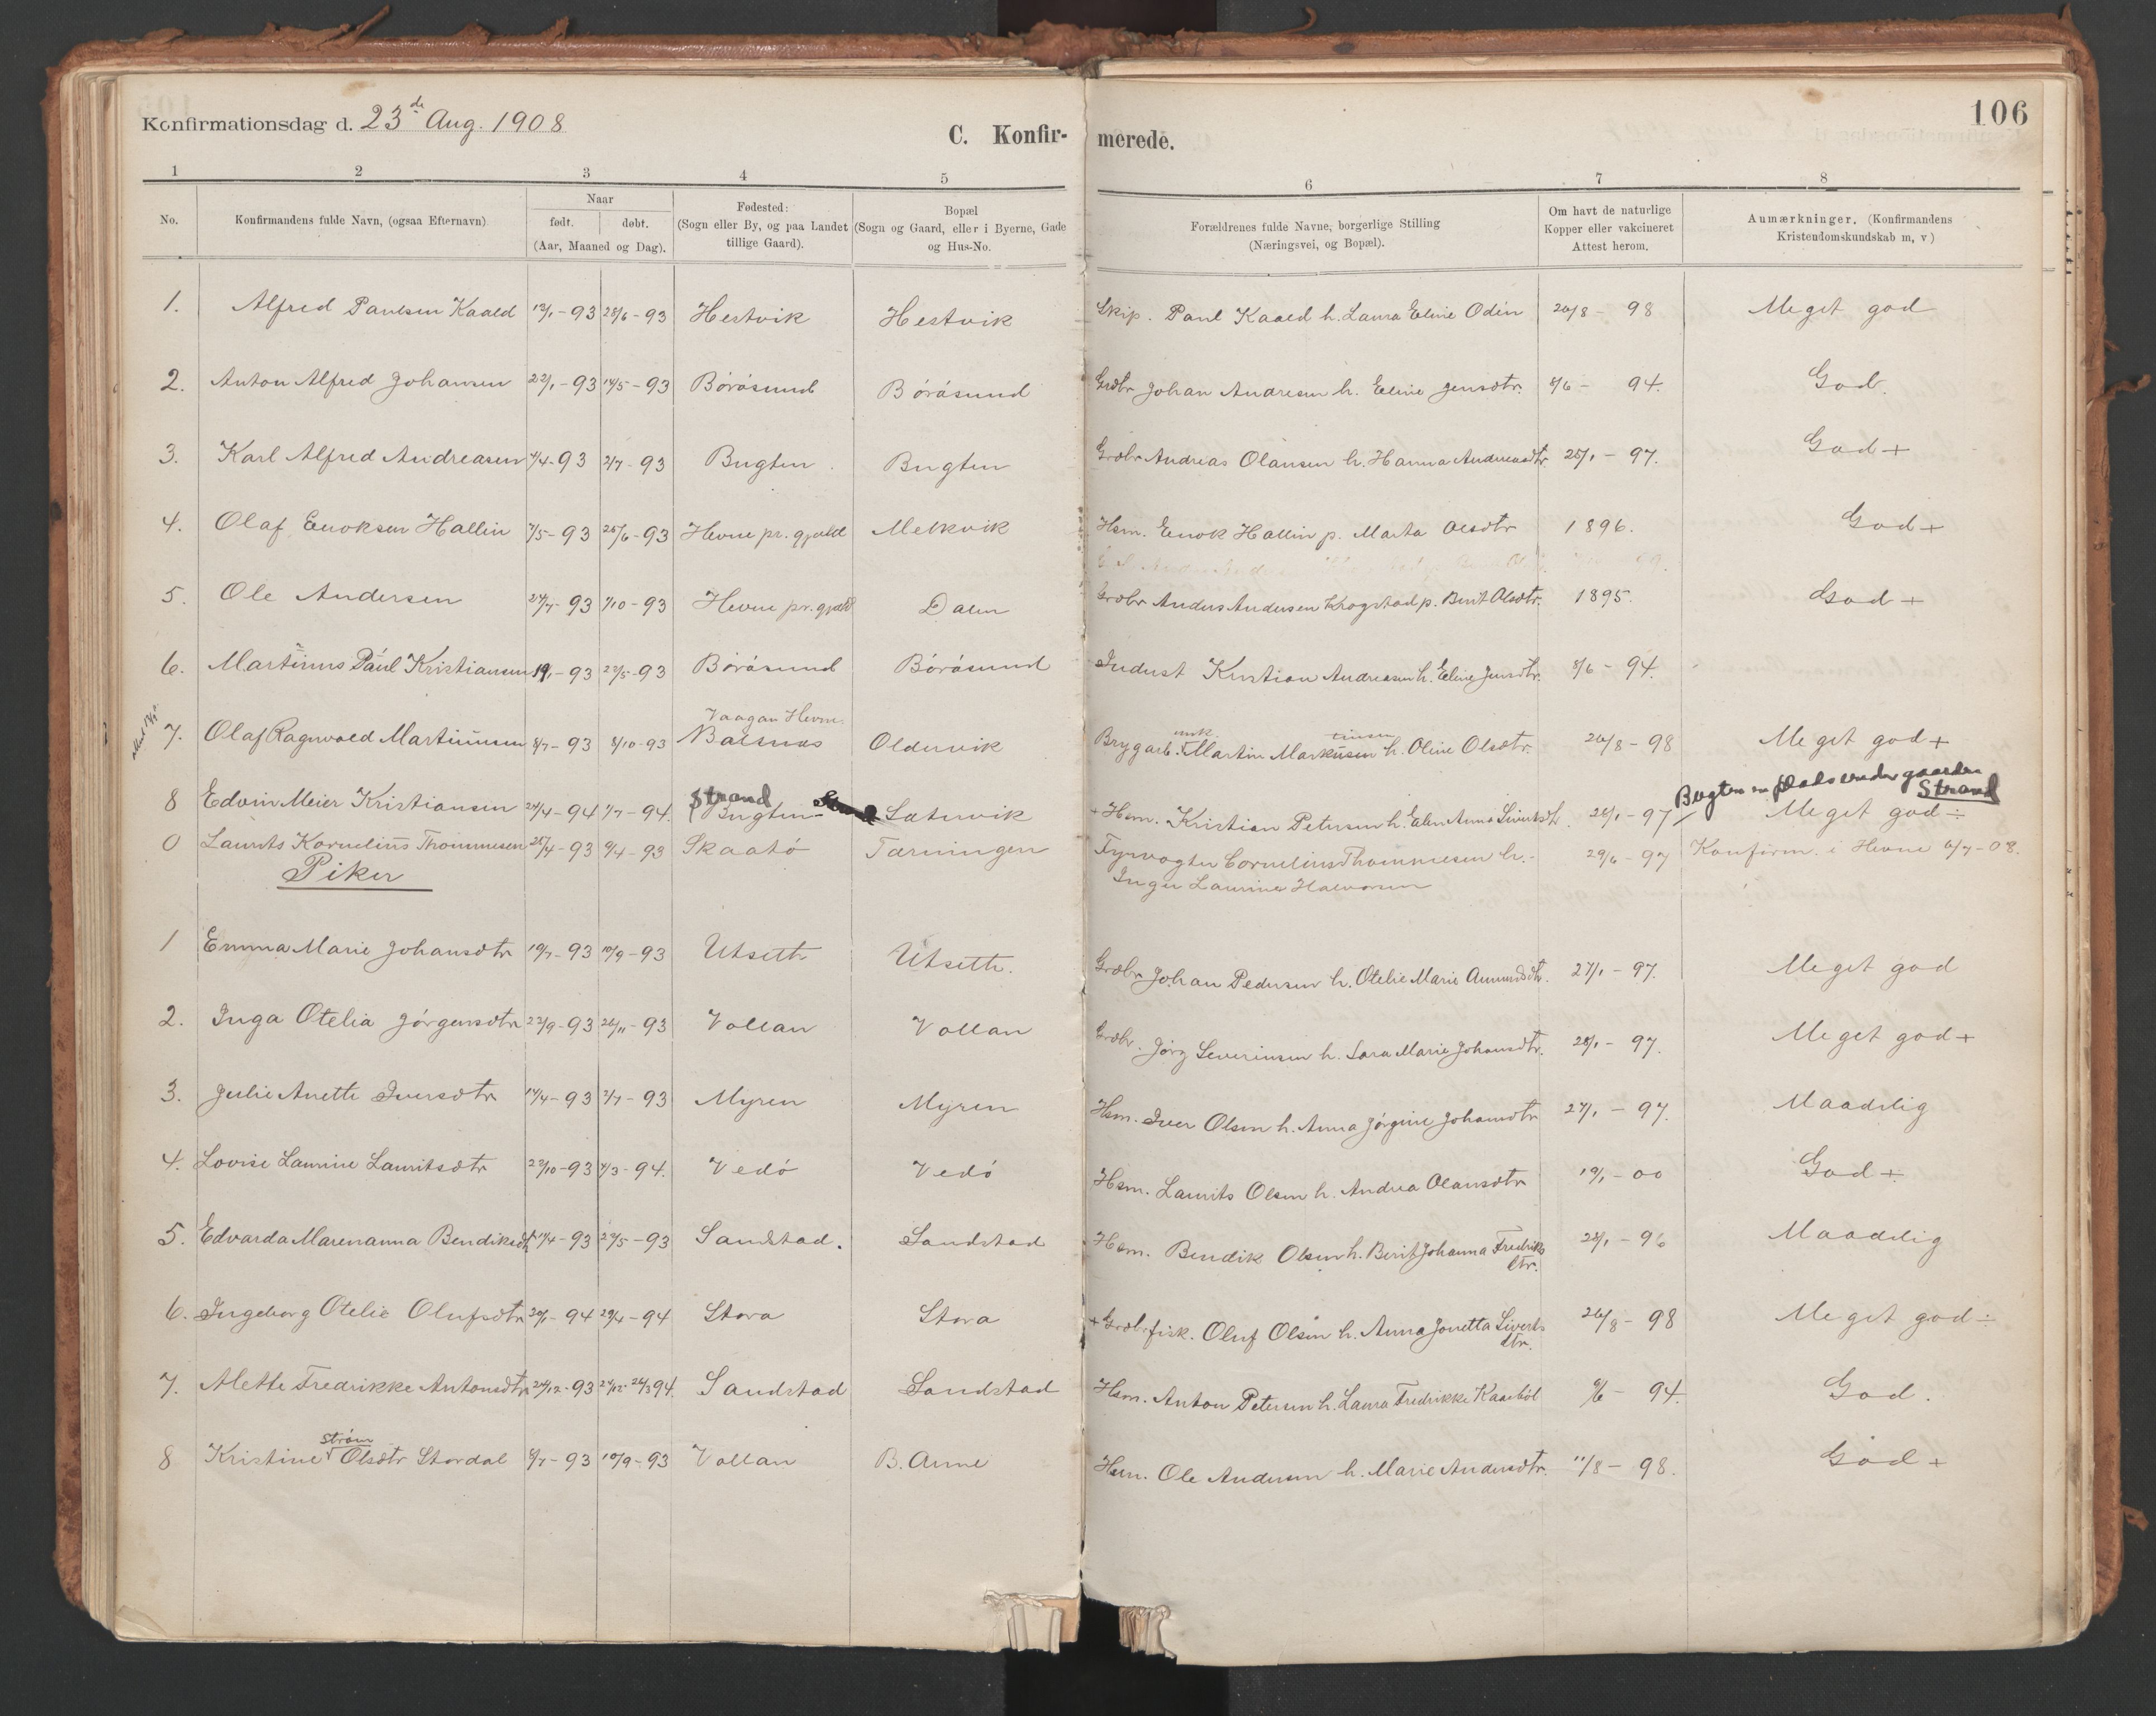 Konfirmationsdag d. 23de Aug. 1908
C. Konfir- merede.
106
1 2 3 4 5 6 7 8
No.
Konfirmandens fulde Navn, (ogsaa Efternavn)
Naar
født. døbt.
(Aar, Maaned og Dag).
Fødested:
(Sogn eller By, og paa Landet
tillige Gaard).
Bopæl
(Sogn og Gaard, eller i Byerne, Gade
og Hus-No.
Forældrenes fulde Navne, borgerlige Stilling
(Næringsvei, og Bopæl).
Om havt de naturlige
Kopper eller vakcineret
Attest herom.
Anmærkninger. (Konfirmandens
Kristendomskundskab m, v)
1. Alfred Paulsen Kaald 12/1-93 28/6-93 Hestvik Hestvik Skip. Paul Kaald h. Laura Eline Odin 26/8 - 98 Meget god
2. Anton Alfred Johansen 22/1-93 14/5-93 Börösund Börösund Grdbr Johan Andresen h. Eline Jensdtr. 8/6 - 94. God.
3. Karl Alfred Andreasen 4/4-93 2/7-93 Bugten Bugten Grdbr Andreas Olausen h. Hanna Andreasdtr. 25/1 - 97. God +
4. Olaf Enoksen Hallin 7/5-93 25/6-93 Hevne pr. gjæld Melkvik Hsm. Enok Hallin p. Marta Olsdtr 1896. God +
5. Ole Andersen 24/7-93 1/10-93 Hevne pr. gjæld Dalen Grdbr Anders Andersen Krogstad p. Berit Olsdtr. 1895. God +
6. Martinus Paul Kristiansen 19/1-93 22/5-93 Börösund Börösund Indust Kristian Andreasen h. Eline Jensdtr. 8/6 - 94.
Vaagan Hevne.
7. Olaf Ragnvald Martinusen 8/7-93 8/10-93 Balsnes Oldervik Brygarb. Martin Markusen h. Oline Olsdtr. 26/8 - 98 Meget god +
Bugten en plads under gaarden
Strand Strand
8 Edvin Meier Kristiansen 24/4-94 1/7-94. Bugten Sætervik + Hsm. Kristian Petersen h. Elen Anna Sivertsdtr. 26/1 - 97 Meget god ÷
0 Laurits Kornelius Thommesen 25/4-93 9/4-93 Skaatö Tærningen Fyrvogter Cornelius Thommesen h. 29/6 - 97 Konfirm. i Hevne 6/7-08.
Inger Laurine Halvorsen
Piker
1 Emma Marie Johansdtr 19/7-93 10/9-93 Utseth Utseth. Grdbr Johan Pedersen h. Otelie Marie Amundsdtr. 27/1 - 97. Meget god
2. Inga Otelia Jörgensdtr 22/9-93 26/11-93 Vollan Vollan Grdbr. Jörg Severinsen h. Sara Marie Johansdtr. 28/1 - 97. Meget god +
3. Julie Anette Iversdtr 14/4-93 2/7-93 Myren Myren Hsm. Iver Olsen h. Anna Jörgine Johansdtr 27/1 - 97. Maadelig
4. Lovise Laurine Lauritsdtr 22/10-93 4/3-94. Vedö Vedö Hsm. Laurits Olsen h. Andrea Olausdtr 19/1 - 00 God +
5. Edvarda Marenanna Bendiksdtr 14/4-93 22/5-93 Sandstad. Sandstad Hsm. Bendik Olsen h. Berit Johanna Fredriks 28/1 - 96 Maadelig
dtr.
6. Ingeborg Otelie Olufsdtr 20/1-94 29/4-94 Stora Stora + Grdbr. fisk. Oluf Olsen h. Anna Jonetta Siverts 26/8 - 98 Meget god ÷
dtr.
7. Alette Fredrikke Antonsdtr 24/12-93 27/12-26/3 94. Sandstad Sandstad Hsm. Anton Petersen h. Laura Fredrikke Kaarböl 9/6 - 94. God.
Ström
8 Kristine Olsdtr Stordal 6/7-93 10/9-93 Vollan B. Aune Hsm. Ole Andersen h. Marie Andersdtr. 11/8 - 98. God +